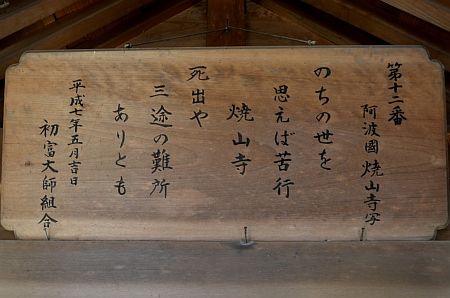 第十二番
阿波國焼山寺写
のちの世を
思えば苦行
焼山寺
死出や
三途の難所
ありとも
平成七年五月吉日
初富大師組合